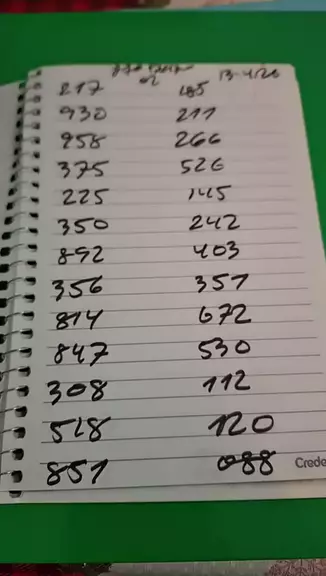 02 13-4/26
217 185
930 211
958 266
375 526
225 145
350 242
892 403
356 351
814 672
847 530
308 112
518 120
851 088
Crede